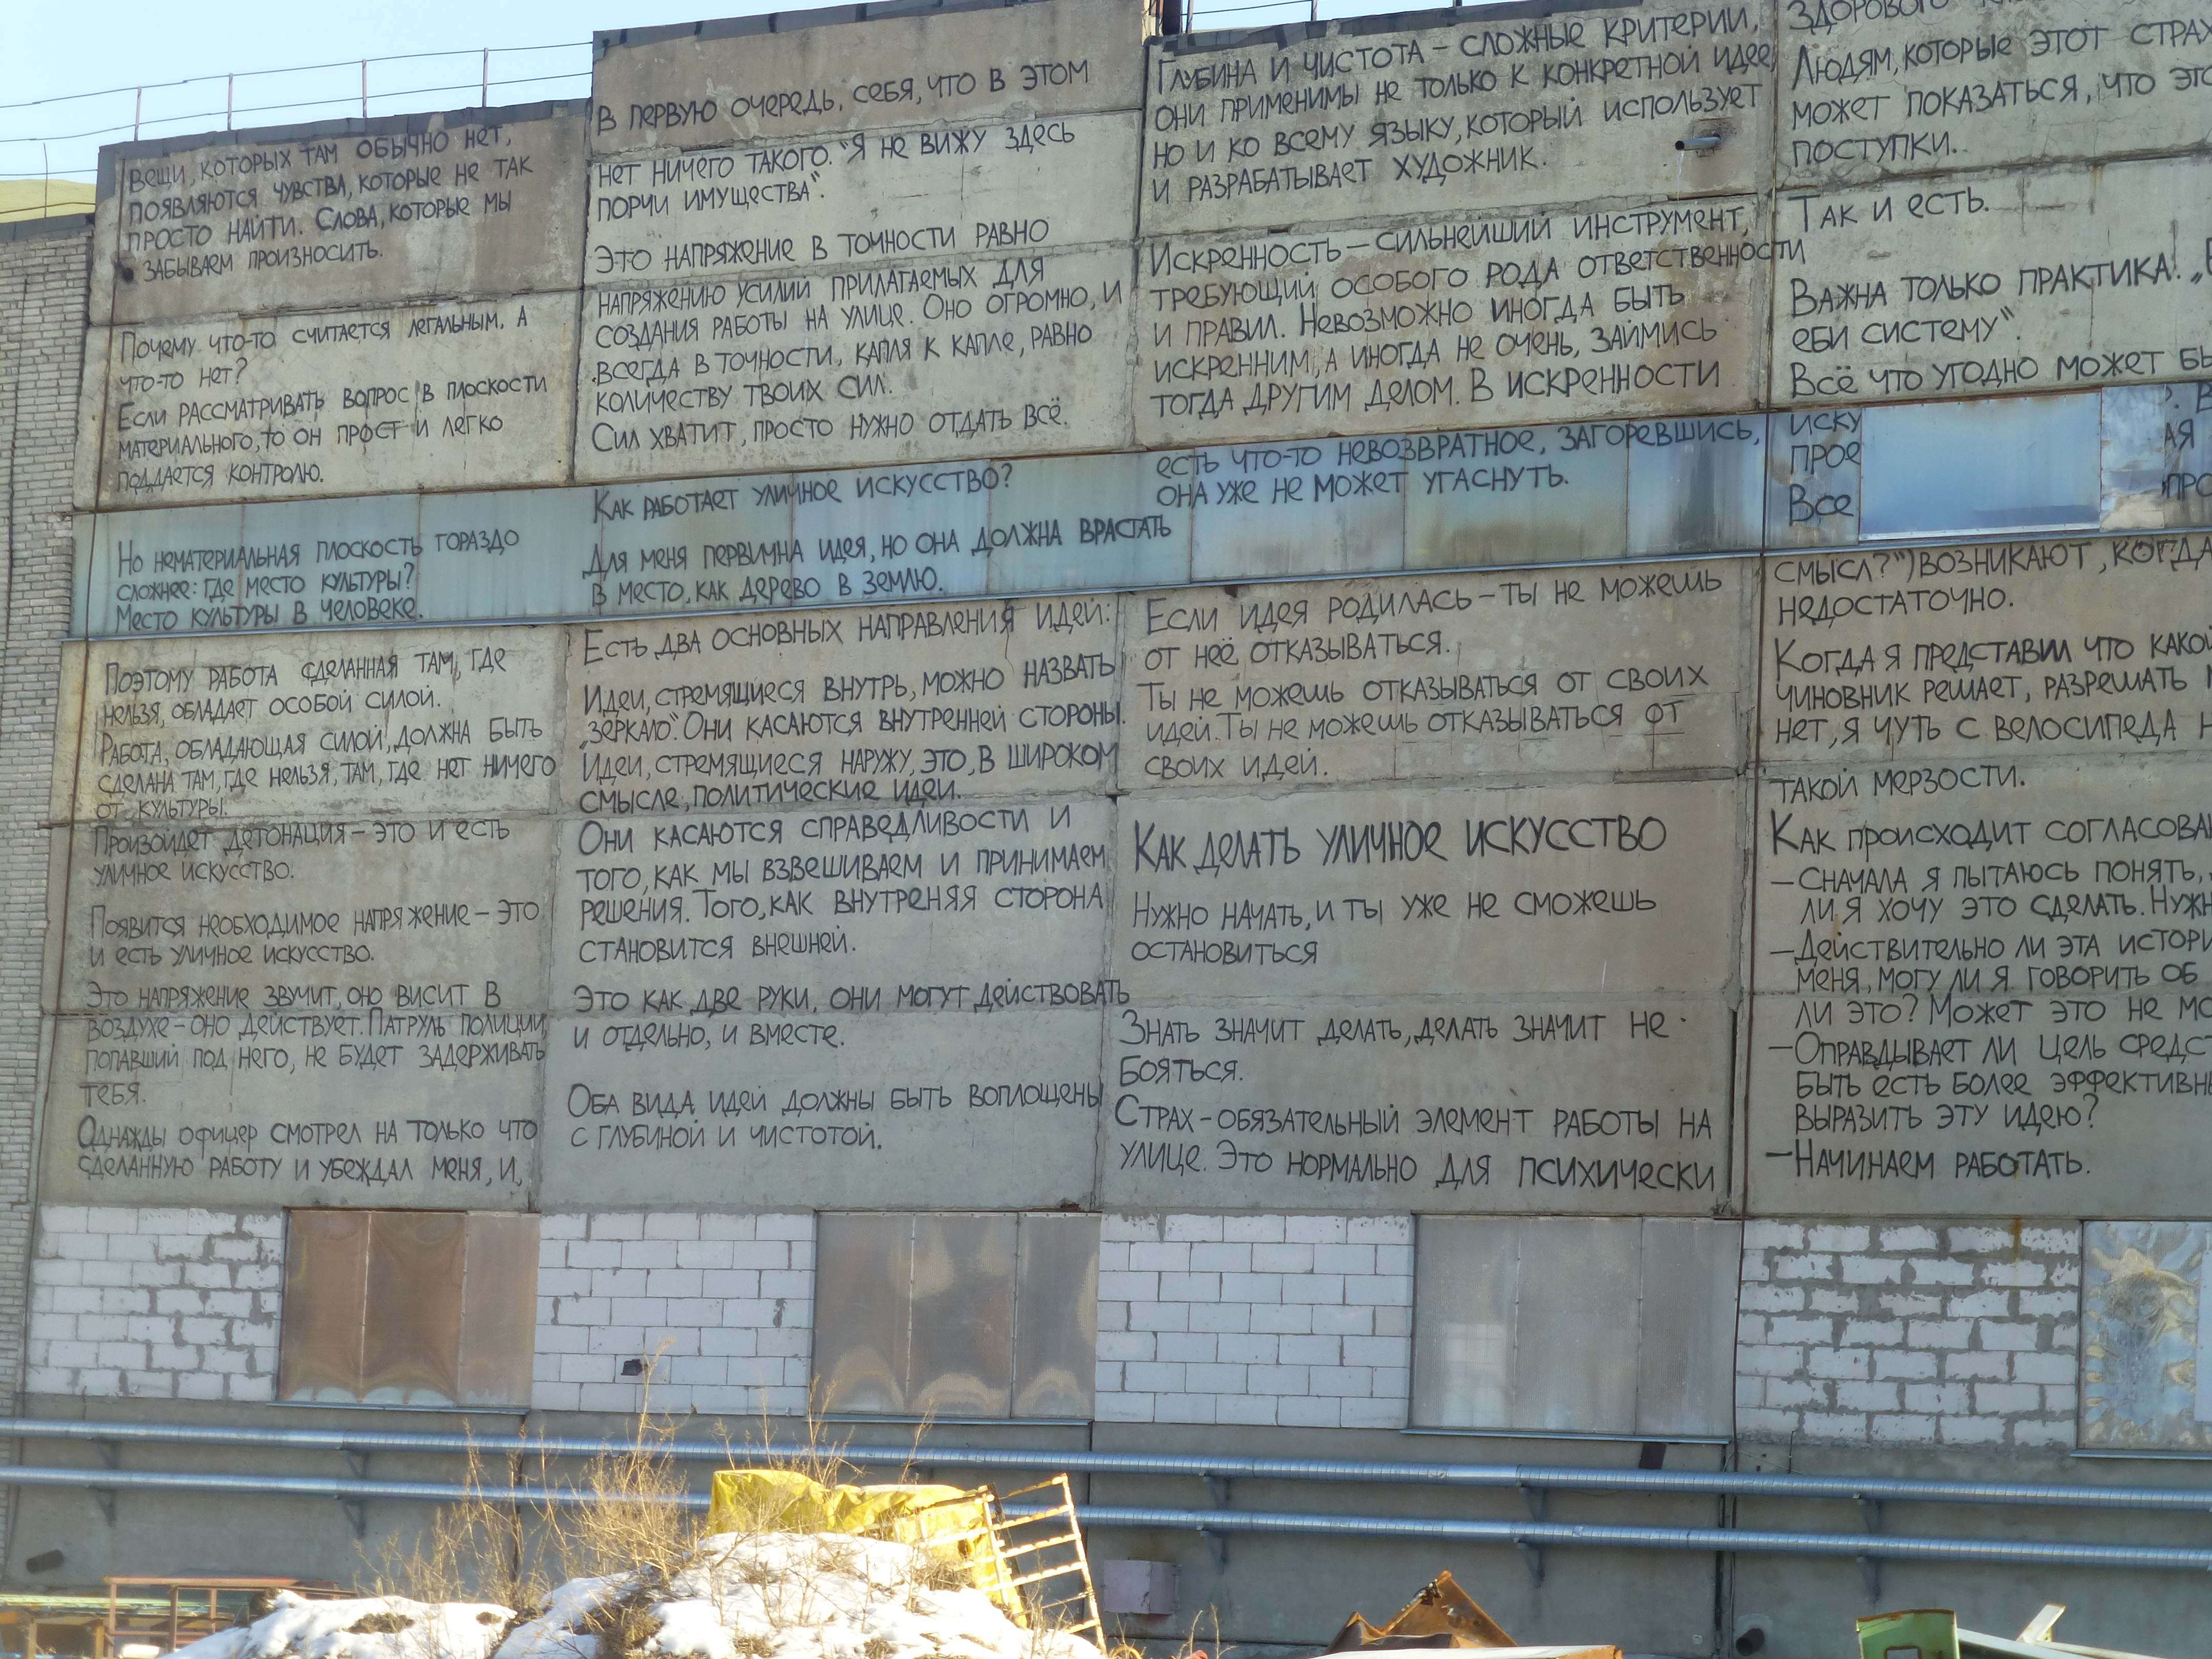 вещи, которых там обычно нет,
появляются чувства, которые не так
просто найти. Слова, которые мы
забываем произносить.
Почему что-то считается легальным, а
что-то нет?
Если рассматривать вопрос в плоскости
материального, то он прост и легко
поддается контролю.
Но нематериальная плоскость гораздо
сложнее: где место культуры?
Место культуры в человеке.
Поэтому работа сделанная там, где
нельзя, обладает особой силой.
Работа, обладающая силой, должна быть
сделана там, где нельзя, там, где нет ничего
от культуры.
Произойдет детонация – это и есть
уличное искусство.
Появится необходимое напряжение – это
и есть уличное искусство.
Это напряжение звучит, оно висит в
воздухе – оно действует. Патруль полиции,
попавший под него, не будет задерживать
тебя.
Однажды офицер смотрел на только что
сделанную работу и убеждал меня, и,
в первую очередь, себя, что в этом
нет ничего такого. "Я не вижу здесь
порчи имущества".
Это напряжение в точности равно
напряжению усилий прилагаемых для
создания работы на улице. Оно огромно, и
всегда в точности, капля к капле, равно
количеству твоих сил.
Сил хватит, просто нужно отдать всё.
Как работает уличное искусство?
Для меня первична идея, но она должна врастать
в место, как дерево в землю.
Есть два основных направления идей:
Идеи, стремящиеся внутрь, можно назвать
„зеркало". Они касаются внутренней стороны.
Идеи, стремящиеся наружу, это, в широком
смысле, политические идеи.
Они касаются справедливости и
того, как мы взвешиваем и принимаем
решения. Того, как внутреняя сторона
становится внешней.
Это как две руки, они могут действовать
и отдельно, и вместе.
Оба вида идей должны быть воплощены
с глубиной и чистотой.
Глубина и чистота – сложные критерии,
они применимы не только к конкретной идее,
но и ко всему языку, который использует
и разрабатывает художник.
Искренность – сильнейший инструмент,
требующий особого рода ответственности
и правил. Невозможно иногда быть
искренним, а иногда не очень, займись
тогда другим делом. В искренности
есть что-то невозвратное, загоревшись,
она уже не может угаснуть.
Если идея родилась – ты не можешь
от неё отказываться.
Ты не можешь отказываться от своих
идей. Ты не можешь отказываться от
своих идей.
Как делать уличное искусство
Нужно начать, и ты уже не сможешь
остановиться
Знать значит делать, делать значит не
бояться.
Страх – обязательный элемент работы на
улице. Это нормально для психически
здорового
Людям, которые этот страх
может показаться, что это
поступки.
Так и есть.
Важна только практика.
еби систему".
Всё что угодно может
Все
смысл?") возникают, когда
недостаточно.
Когда я представил что какой
чиновник решает, разрешать
нет, я чуть с велосипеда
такой мерзости.
Как происходит
– Сначала я пытаюсь понять,
ли я хочу это сделать.
– Действительно ли эта
меня, могу ли я говорить об
ли это? Может это не
– Оправдывает ли цель
быть есть более
выразить эту идею?
– Начинаем работать.